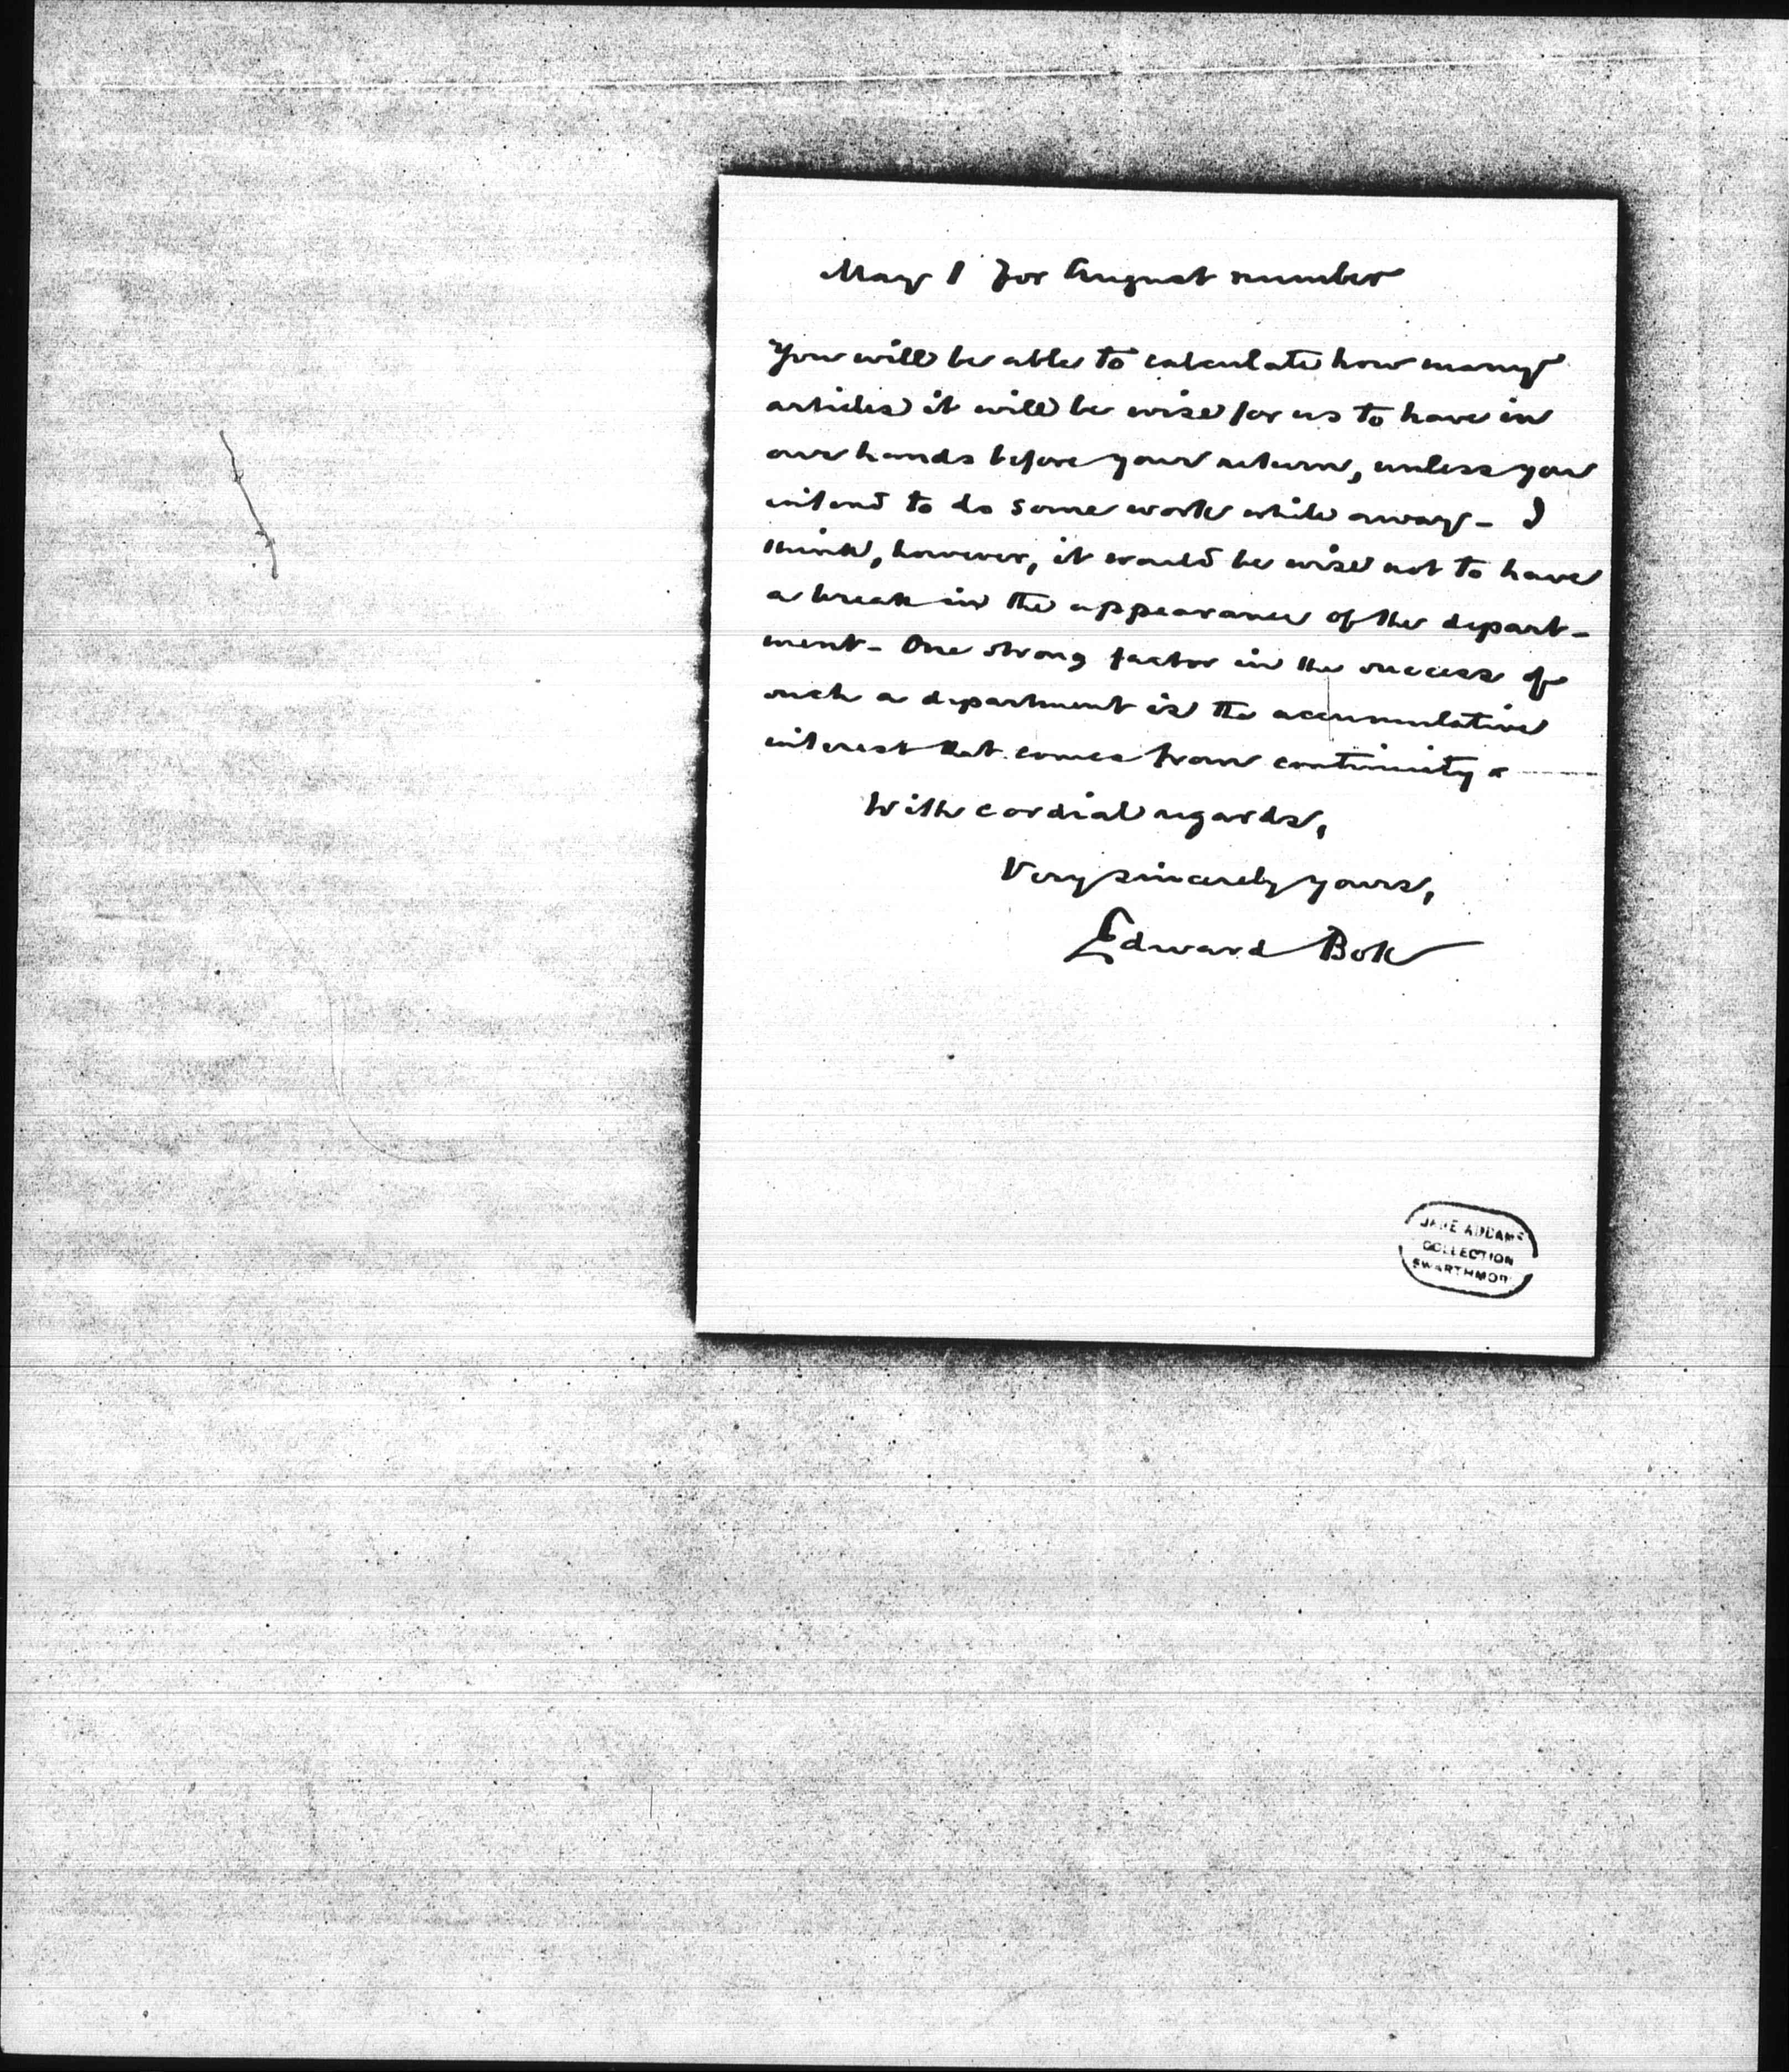 May 1 for August number
You will be able to calculate how many
articles it will be wise for us to have in
our hands before your return, unless you
intend to do some work while away - I
think, however, it would be wise not to have
a break in the appearance of the depart-
ment - One strong factor in the success of
such a department is the accumulative
interest that comes from continuity
With cordial regards,
Very sincerely yours,
Edward Bok
JANE ADDAMS
COLLECTION
SWARTHMOR